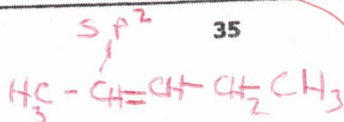 sp² 35
H₃C - CH=CH - CH₂ - CH₃